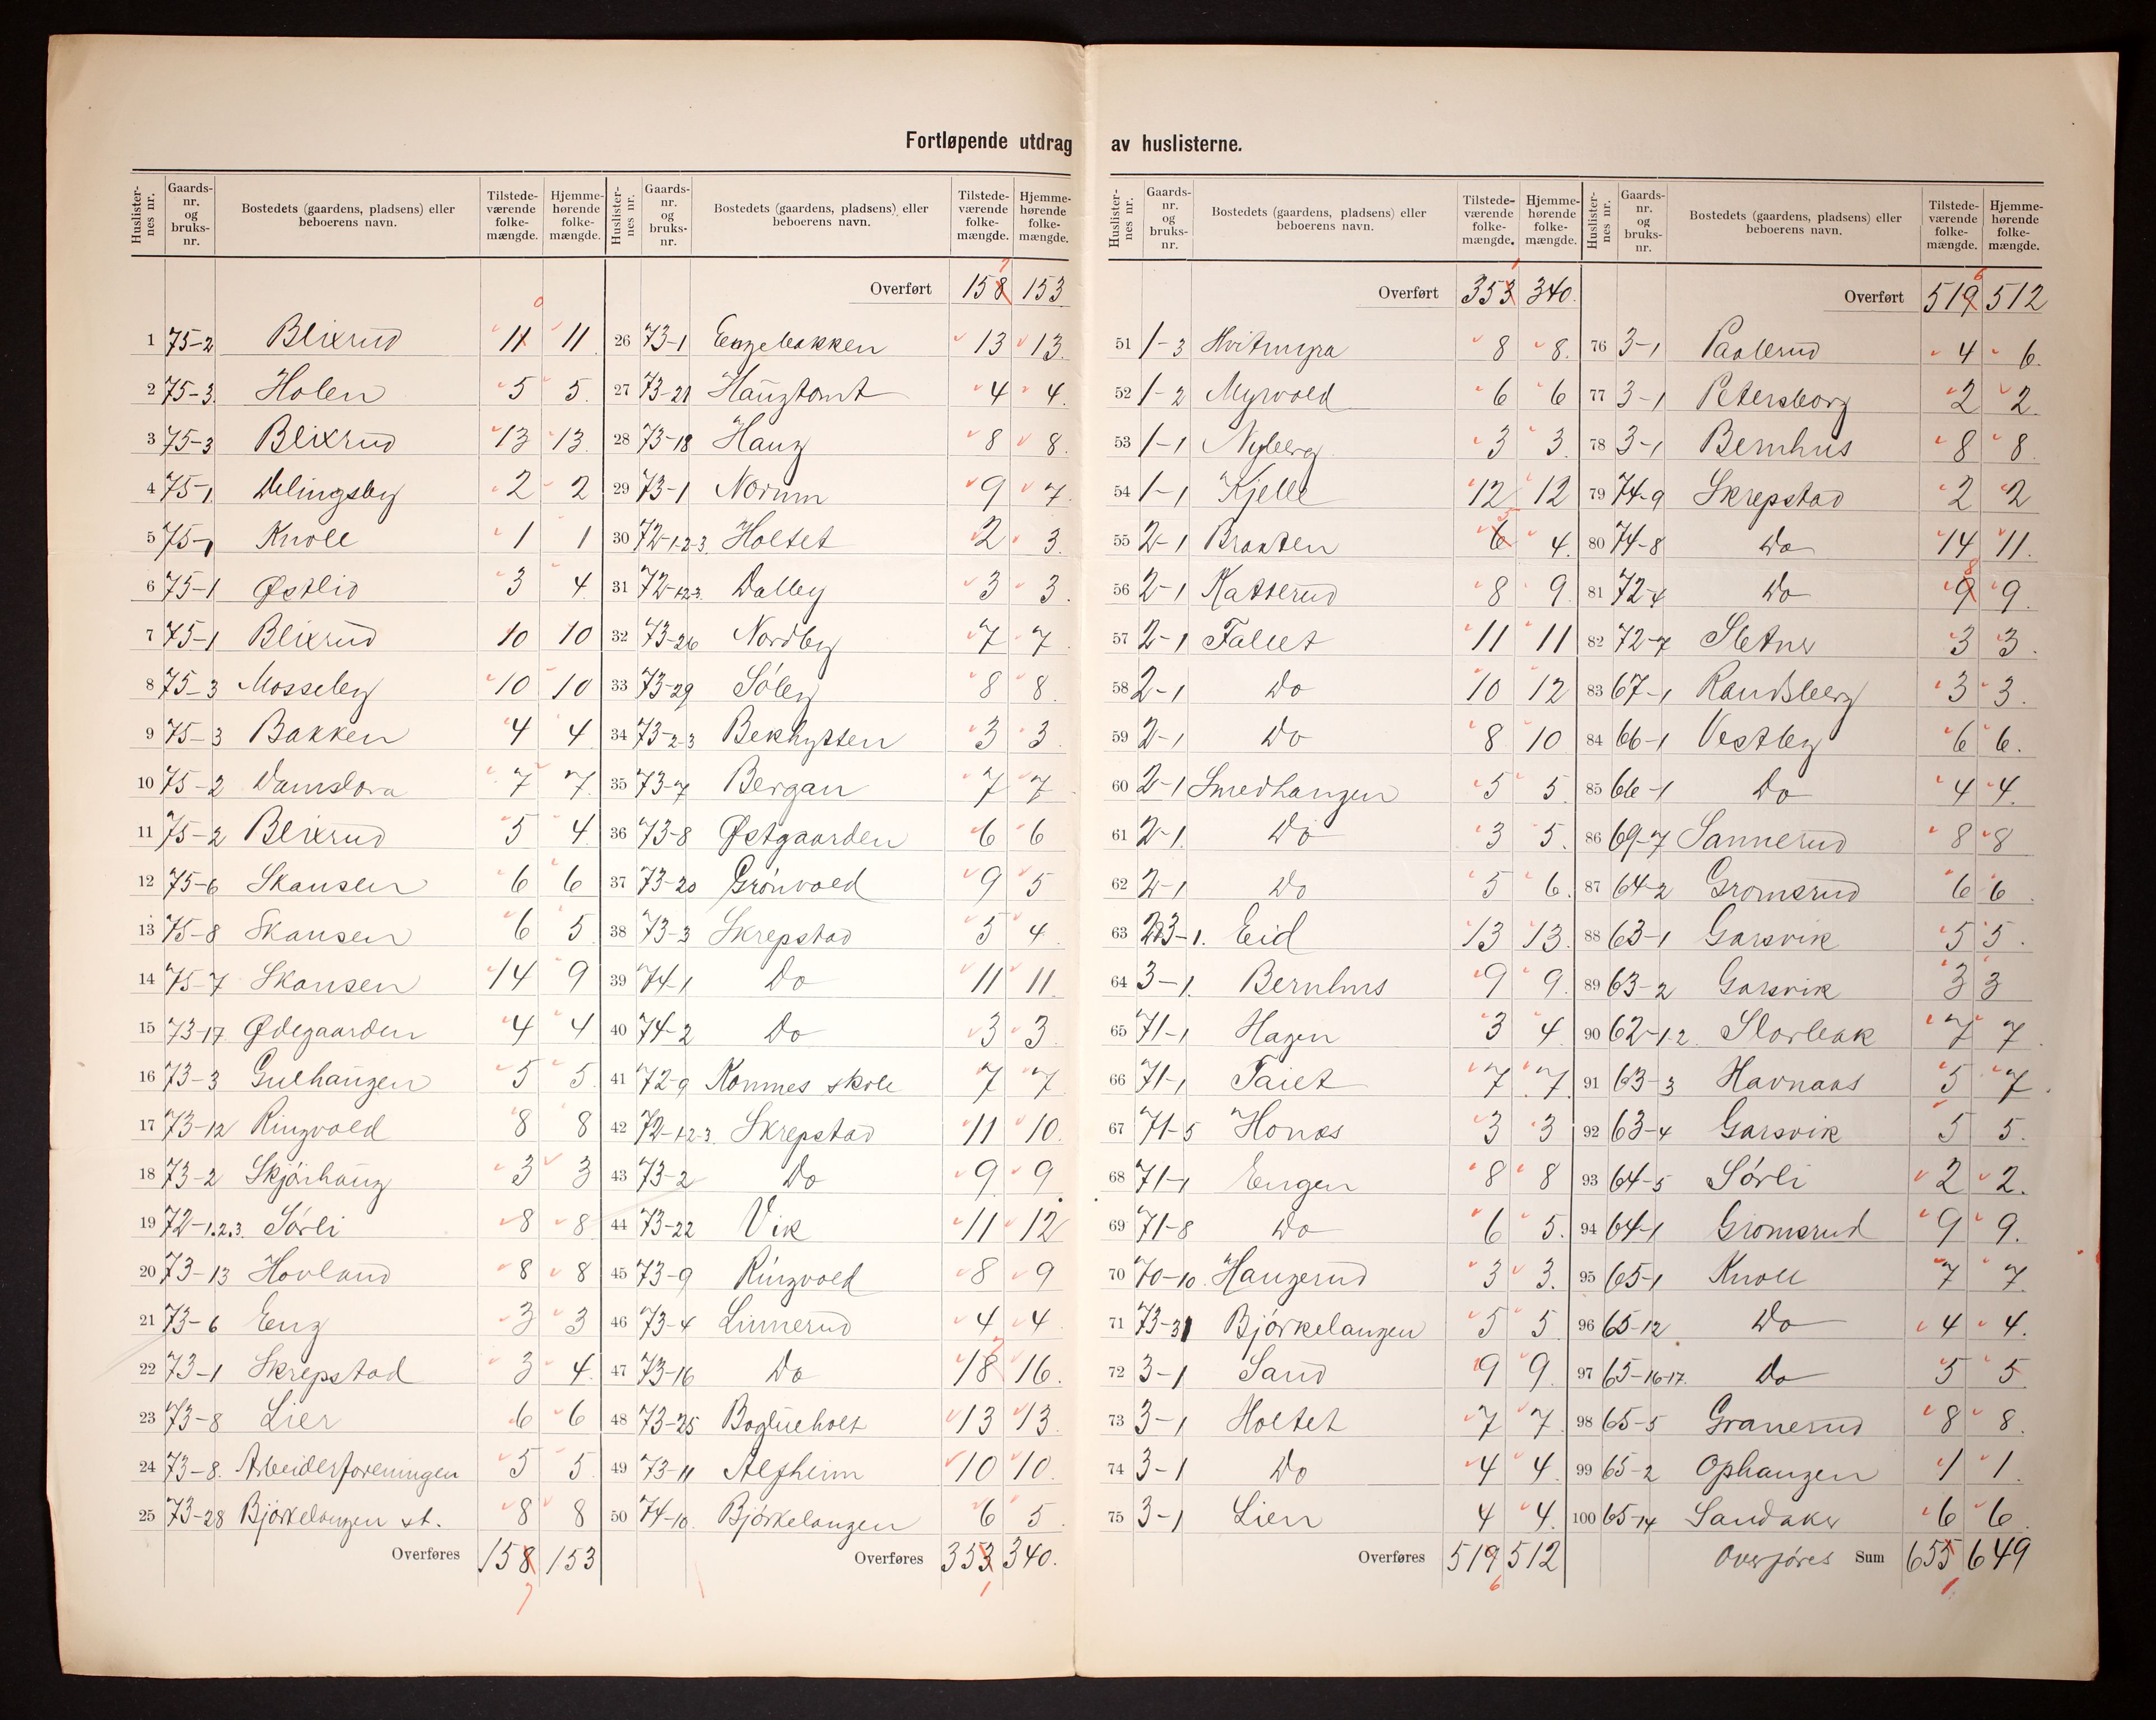 Fortløpende utdrag av huslisterne.
Huslisternes nr. Gaardsnr. og bruksnr. Bostedets (gaardens, pladsens) eller beboerens navn. Tilstedeværende folkemængde. Hjemmehørende folkemængde.
1 75-2 Blixrud 11 11
2 75-3 Holen 5 5
3 75-3 Blixrud 13 13
4 75-1 Delingsby 2 2
5 75-1 Knoll 1 1
6 75-1 Østlid 3 4
7 75-1 Blixrud 10 10
8 75-3 Mosseby 10 10
9 75-3 Bakken 4 4
10 75-2 Damslora 7 7
11 75-2 Blixrud 5 4
12 75-6 Skansen 6 6
13 75-8 Skansen 6 5
14 75-7 Skansen 14 9
15 73-17 Ødegaarden 4 4
16 73-3 Gulhaugen 5 5
17 73-12 Ringvold 8 8
18 73-2 Skjørhaug 3 3
19 72-1.2.3. Sørli 8 8
20 73-13 Hovland 8 8
21 73-6 Eng 3 3
22 73-1 Skrepstad 3 4
23 73-8 Lier 6 6
24 73-8. Arbeiderforeningen 5 5
25 73-28 Bjørkelangen st. 8 8
Overføres 158 153
7
Huslisternes nr. Gaardsnr. og bruksnr. Bostedets (gaardens, pladsens) eller beboerens navn. Tilstedeværende folkemængde. Hjemmehørende folkemængde.
Overført 158 153
26 73-1 Engebakken 13 13
27 73-21 Haugtomt 4 4
28 73-18 Haug 8 8
29 73-1 Norum 9 7
30 72-1-2-3. Holtet 2 3
31 72-1-2-3. Dalby 3 3
32 73-26 Nordby 7 7
33 73-29 Søby 8 8
34 73-2-3 Bekhytten 3 3
35 73-7 Bergan 7 7
36 73-8 Østgaarden 6 6
37 73-20 Grønvold 9 5
38 73-3 Skrepstad 5 4
39 74-1 Do 11 11
40 74-2 Do 3 3
41 72-9 Kommes skole 7 7
42 72-1-2-3. Skrepstad 11 10
43 73-2 Do 9 9
44 73-22 Vik 11 12
45 73-9 Ringvold 8 9
46 73-4 Linnerud 4 4
47 73-16 Do 18 16
48 73-25 Boglieholt 13 13
49 73-11 Alfheim 10 10
50 74-10. Bjørkelangen 6 5
Overføres 353 340.
1
Huslisternes nr. Gaardsnr. og bruksnr. Bostedets (gaardens, pladsens) eller beboerens navn. Tilstedeværende folkemængde. Hjemmehørende folkemængde.
Overført 353 340.
51 1-3 Hvitmyra 8 8
52 1-2 Myrvold 6 6
53 1-1 Nyberg 3 3
54 1-1 Kjelle 12 12
55 2-1 Braaten 6 4
56 2-1 Katterud 8 9
57 2-1 Fallet 11 11
58 2-1 Do 10 12
59 2-1 Do 8 10
60 2-1 Smedhaugen 5 5
61 2-1. Do 3 5
62 2-1 Do 5 6
63 3-1. Eid 13 13
64 3-1. Bernhus 9 9
65 71-1 Hagen 3 4
66 71-1 Taiet 7 7
67 71-5 Honas 3 3
68 71-1 Engen 8 8
69 71-8 Do 6 5
70 70-10. Haugerud 3 3
71 73-31 Bjørkelangen 5 5
72 3-1 Sand 9 9
73 3-1 Holtet 7 7
74 3-1 Do 4 4
75 3-1 Lien 4 4
Overføres 519 512
6
Huslisternes nr. Gaardsnr. og bruksnr. Bostedets (gaardens, pladsens) eller beboerens navn. Tilstedeværende folkemængde. Hjemmehørende folkemængde.
Overført 519 512
76 3-1 Paalerud 4 6
77 3-1 Petersborg 2 2
78 3-1 Bernhus 8 8
79 74-9 Skrepstad 2 2
80 74-8 Do 14 11
81 72-4 Do 9 9
82 72-7 Sletner 3 3
83 67-1 Randsberg 3 3
84 66-1 Vestby 6 6
85 66-1 Do 4 4
86 69-7 Sannerud 8 8
87 64-2 Gromsrud 6 6
88 63-1 Garsvik 5 5
89 63-2 Garsvik 3 3
90 62-1.2. Storbak 7 7
91 63-3 Havnaas 5 7
92 63-4 Garsvik 5 5
93 64-5 Sørli 2 2
94 64-1 Gromsrud 9 9
95 65-1 Knoll 7 7
96 65-12 Do 4 4
97 65-16-17. Do 5 5
98 65-5 Granerud 8 8
99 65-2 Ophaugen 1 1
100 65-14 Sandaker 6 6
Overføres Sum 655 649
1